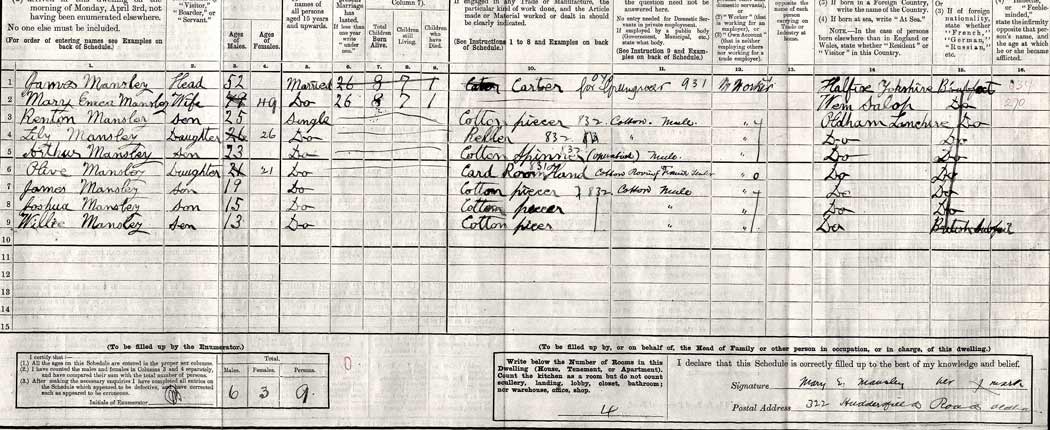 morning of Monday, April 3rd, not
having been enumerated elsewhere.
No one else must be included.
(For order of entering names see Examples on
back of Schedule.)
"Visitor,"
"Boarder," or
"Servant."
Ages
of
Males.
Ages
of
Females.
names of
all persons
aged 15 years
and upwards.
Marriage
has
lasted.
If less than
one year
write
"under one."
Column 7).
Total
Children
Born
Alive.
Children
still
Living.
Children
who
have
Died.
engaged in any Trade or Manufacture, the
particular kind of work done, and the Article
made or Material worked or dealt in should
be clearly indicated.
(See Instructions 1 to 8 and Examples on back
of Schedule.)
the question need not be
answered here.
No entry needed for Domestic Servants in private employment.
If employed by a public body
(Government, Municipal, etc.)
state what body.
(See Instruction 9 and Examples on back of Schedule.)
(2) "Worker" (that
is working for an
employer), or
(3) "Own Account"
(that is neither
employing others
nor working for a
trade employer).
opposite the
name of each
person
carrying on
Trade or
Industry at
home.
(3) If born in a Foreign Country,
write the name of the Country.
(4) If born at sea, write "At Sea."
NOTE.—In the case of persons
born elsewhere than in England or
Wales, state whether "Resident" or
"Visitor" in this Country.
(3) If of foreign
nationality,
state whether
"French,"
"German,"
"Russian,"
etc.
"Feeble-minded,"
state the infirmity
opposite that person's name, and
the age at which
he or she became
afflicted.
1. 2. 3. 4. 5. 6. 7. 8. 9. 10. 11. 12. 13. 14. 15. 16.
1 James Mansley Head 52 Married 26 8 7 1 Carter 931 Worker Halifax Yorkshire
2 Mary Emma Mansley Wife 49 Do 26 8 7 1 Wem Salop Do 270
3 Renton Mansley Son 25 Single Cotton piecer 832 Cotton Mule " Oldham Lancshire Do
4 Lily Mansley Daughter 26 Do Reeler 832 " Do Do
5 Arthur Mansley Son 23 Do Cotton Spinner (operative) Mule " Do Do
6 Olive Mansley Daughter 21 Do Card Room Hand Cotton Roving " Do Do
7 James Mansley Son 19 Do Cotton piecer 832 Cotton Mule " Do Do
8 Joshua Mansley Son 15 Do Cotton piecer " " Do Do
9 Willie Mansley Son 13 Do Cotton piecer " " Do British Subject
10
11
12
13
14
15
(To be filled up by the Enumerator.)
I certify that:—
(1.) All the ages on this Schedule are entered in the proper sex columns.
(2.) I have counted the males and females in Columns 3 and 4 separately,
and have compared their sum with the total number of persons.
(3.) After making the necessary enquiries I have completed all entries on
the Schedule which appeared to be defective, and have corrected
such as appeared to be erroneous.
Initials of Enumerator
Total.
Males. Females. Persons.
6 3 9.
0
(To be filled up by, or on behalf of, the Head of Family or other person in occupation, or in charge, of this dwelling.)
Write below the Number of Rooms in this
Dwelling (House, Tenement, or Apartment).
Count the kitchen as a room but do not count
scullery, landing, lobby, closet, bathroom;
nor warehouse, office, shop.
4
I declare that this Schedule is correctly filled up to the best of my knowledge and belief.
Signature Mary E. Mansley her mark
Postal Address 322 Huddersfield Road Oldham